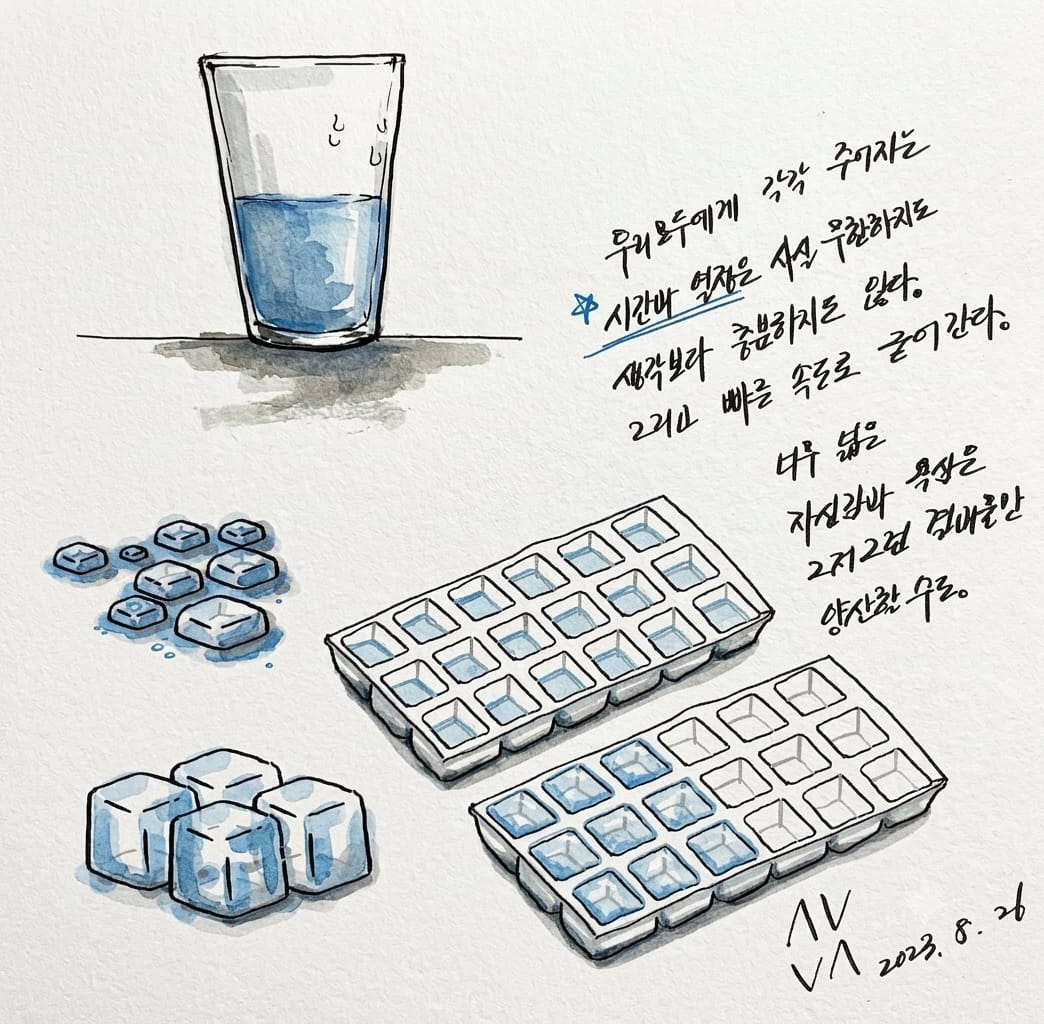 우리 모두에게 각각 주어지는
☆ 시간과 열정은 사실 무한하지도
생각보다 충분하지도 않다.
그리고 빠른 속도로 굳어간다.
너무 넓은
자신감과 욕심은
그저그런 결과물만
양산할 수도.
2023. 8. 26